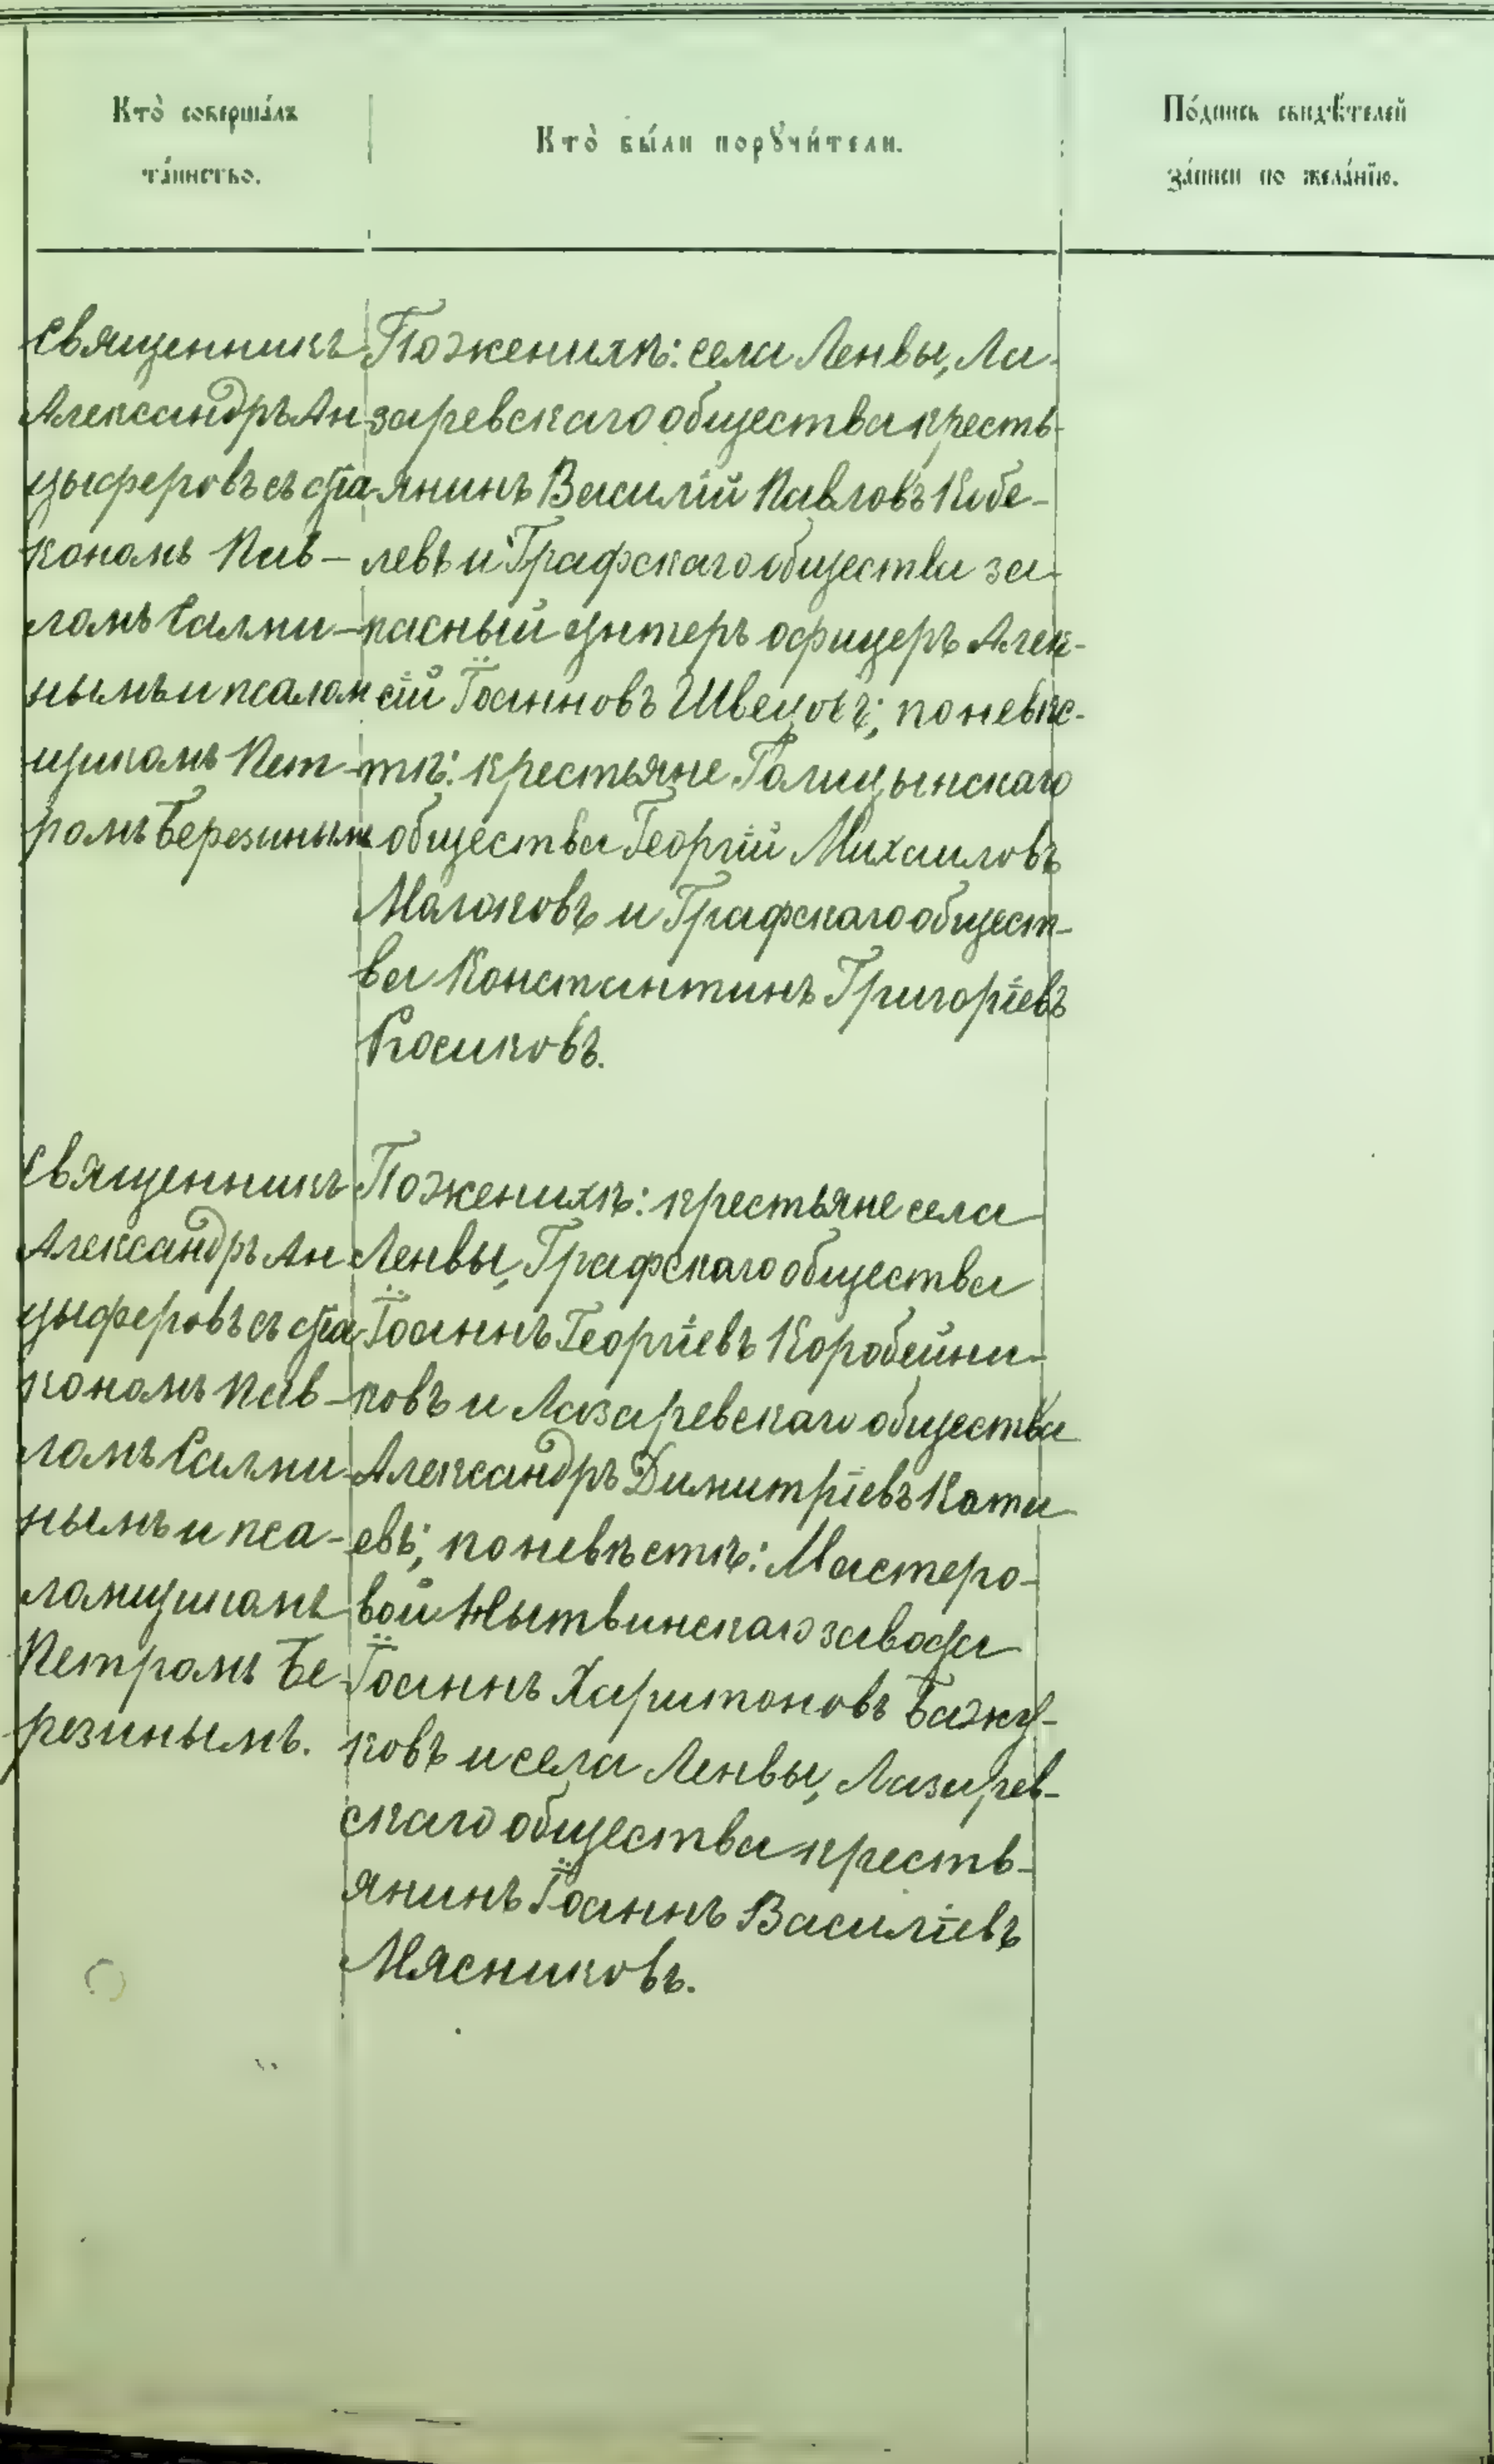 Кто̀ соверша́лъ
та́инство.
Кто̀ бы́ли порꙋчи́тели.
По́дпись свидѣ́телей
за́писи по жела́нїю.
Священникъ
Александръ Ан
цыферовъ съ діа
кономъ Пав-
ломъ Салми-
нымъ и псалом
щикомъ Пет-
ромъ Березинымъ
По женихѣ: села Ленвы, Ла-
заревскаго общества кресть-
янинъ Василій Павловъ Кобе-
левъ и Графскаго общества за-
пасный унтеръ офицеръ Алек-
сій Іоанновъ Швецовъ; по невѣс-
тѣ: крестьяне Голицынскаго
общества Георгій Михаиловъ
Молоковъ и Графскаго общест-
ва Константинъ Григоріевъ
Косиковъ.
Священникъ
Александръ Ан
цыферовъ съ діа
кономъ Пав-
ломъ Салми-
нымъ и пса-
ломщикомъ
Петромъ Бе-
резинымъ.
По женихѣ: крестьяне села
Ленвы, Графскаго общества
Іоаннъ Георгіевъ Коробейни-
ковъ и Лазаревскаго общества
Александръ Димитріевъ Кота-
евъ; по невѣстѣ: Мастеро-
вой Нытвинскаго завода
Іоаннъ Харитоновъ Бажу-
ковъ и села Ленвы, Лазарев-
скаго общества кресть-
янинъ Іоаннъ Василіевъ
Мясниковъ.